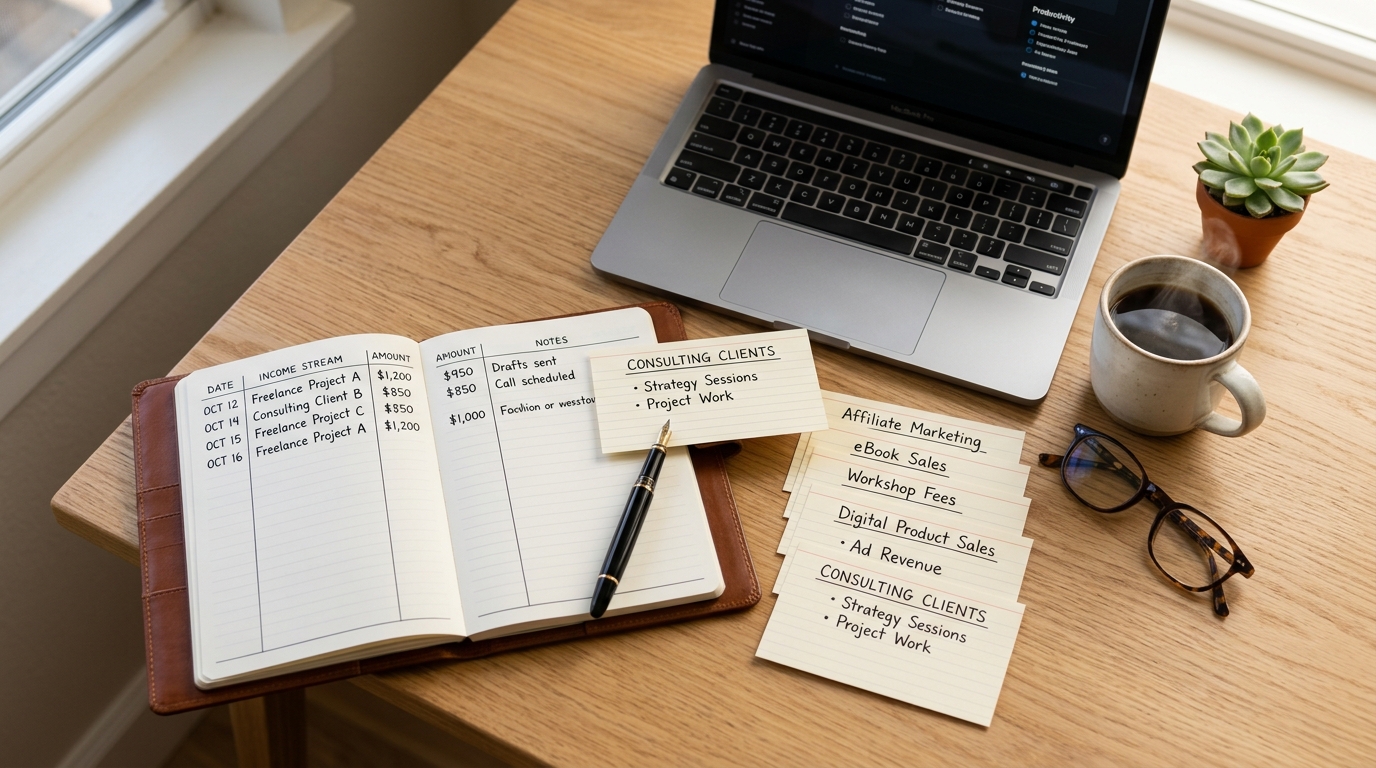 DATE INCOME STREAM AMOUNT
OCT 12 Freelance Project A $1,200
OCT 14 Consulting Client B $850
OCT 15 Freelance Project C $850
OCT 16 Freelance Project A $1,200
AMOUNT NOTES
$950 Drafts sent
$850 Call scheduled
$1,000 or
CONSULTING CLIENTS
• Strategy Sessions
• Project Work
Affiliate Marketing
eBook Sales
Workshop Fees
Digital Product Sales
• Ad Revenue
CONSULTING CLIENTS
• Strategy Sessions
• Project Work
Productivity
MacBook Pro